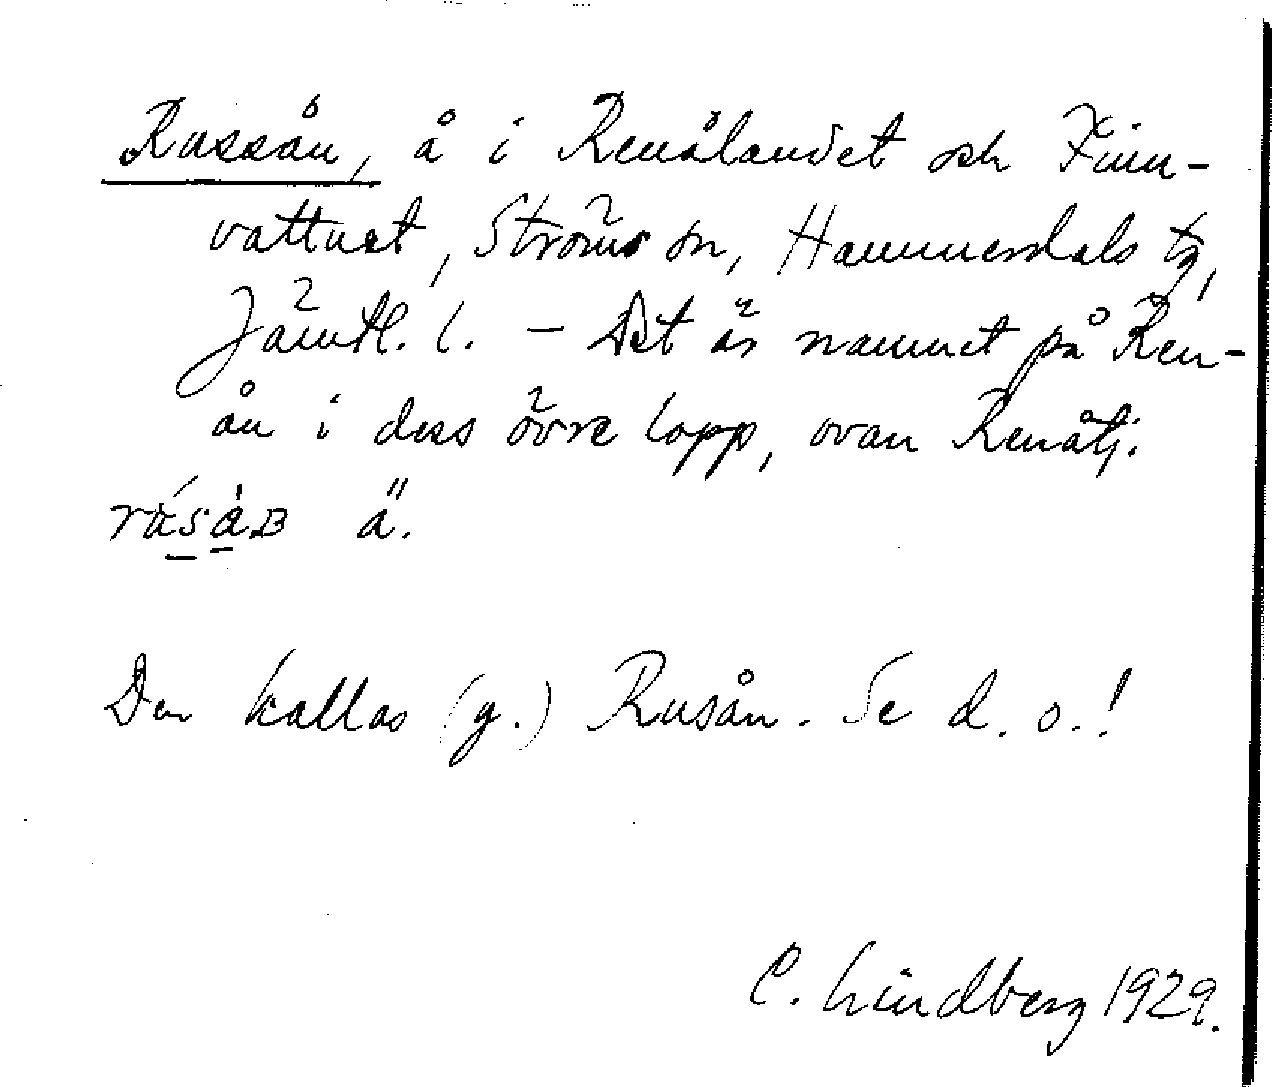 Rassån, å i Renålandet och Finn-
vattnet, Ströms sn, Hammerdals tg,
Jämtl. l. — Det är namnet på Ren-
ån i dess övre lopp, ovan Renåtj.
ä.
Den kallas (g.) Rusån. Se d. o.!
C. Lindberg 1929.